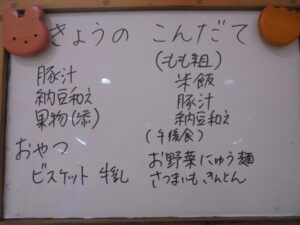 きょうの こんだて
豚汁
納豆和え
果物(柿)
おやつ
ビスケット 牛乳
(もも組)
米飯
豚汁
納豆和え
(午後食)
お野菜にゅう麺
さつまいもきんとん